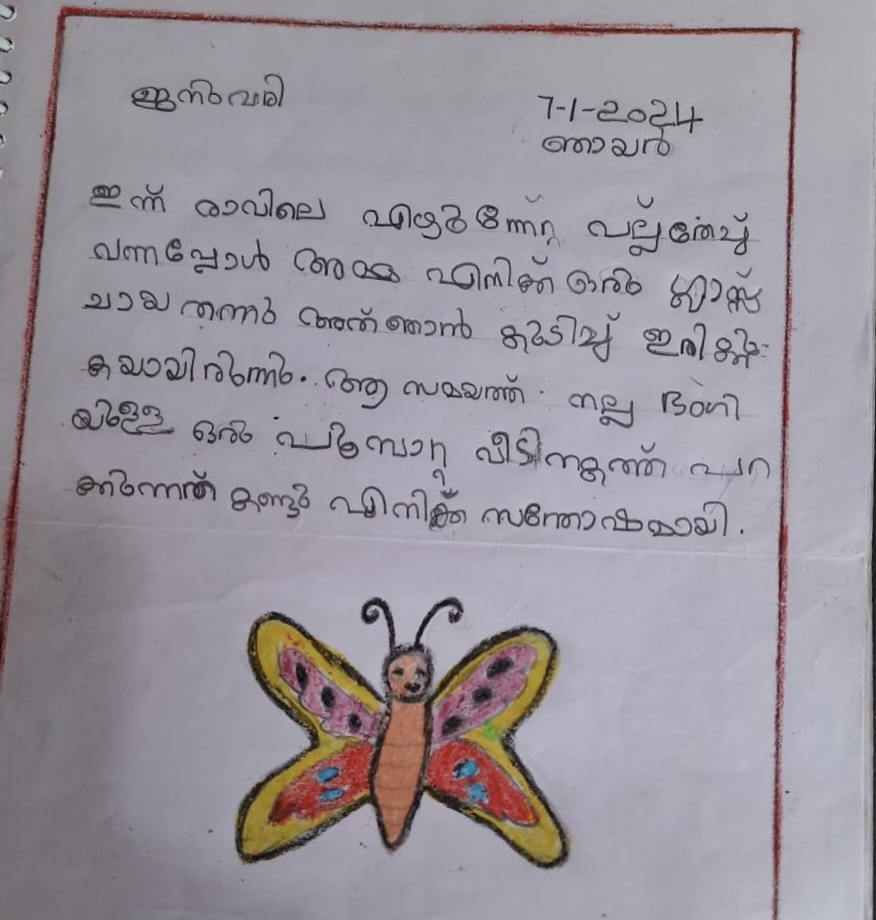 ജനുവരി
7-1-2024
ഞായർ
ഇന്ന് രാവിലെ എഴുന്നേറ്റു പല്ല്തേച്ച്
വന്നപ്പോൾ അമ്മ എനിക്ക് ഒരു ഗ്ലാസ്സ്
ചായ തന്നു അത് ഞാൻ കുടിച്ച് ഇരിക്കു
കയായിരുന്നു. ആ സമയത്ത് നല്ല ഭംഗി
യുള്ള ഒരു പൂമ്പാറ്റ വീടിനകത്ത് പറ
ക്കുന്നത് കണ്ടു എനിക്ക് സന്തോഷമായി.